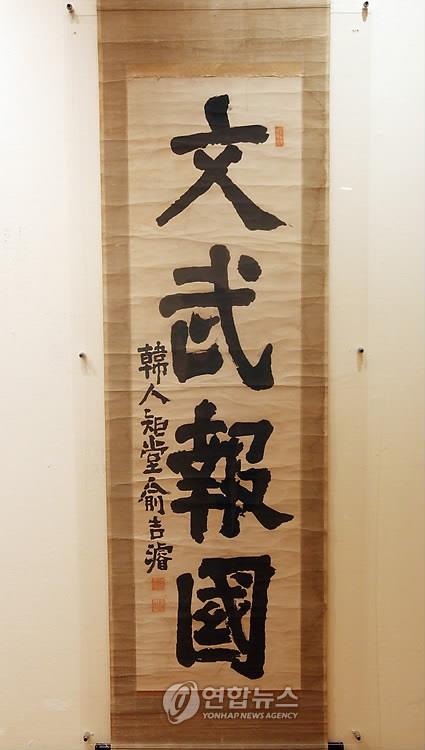 文武報國
韓人矩堂俞吉濬
연합뉴스
YONHAP NEWS AGENCY